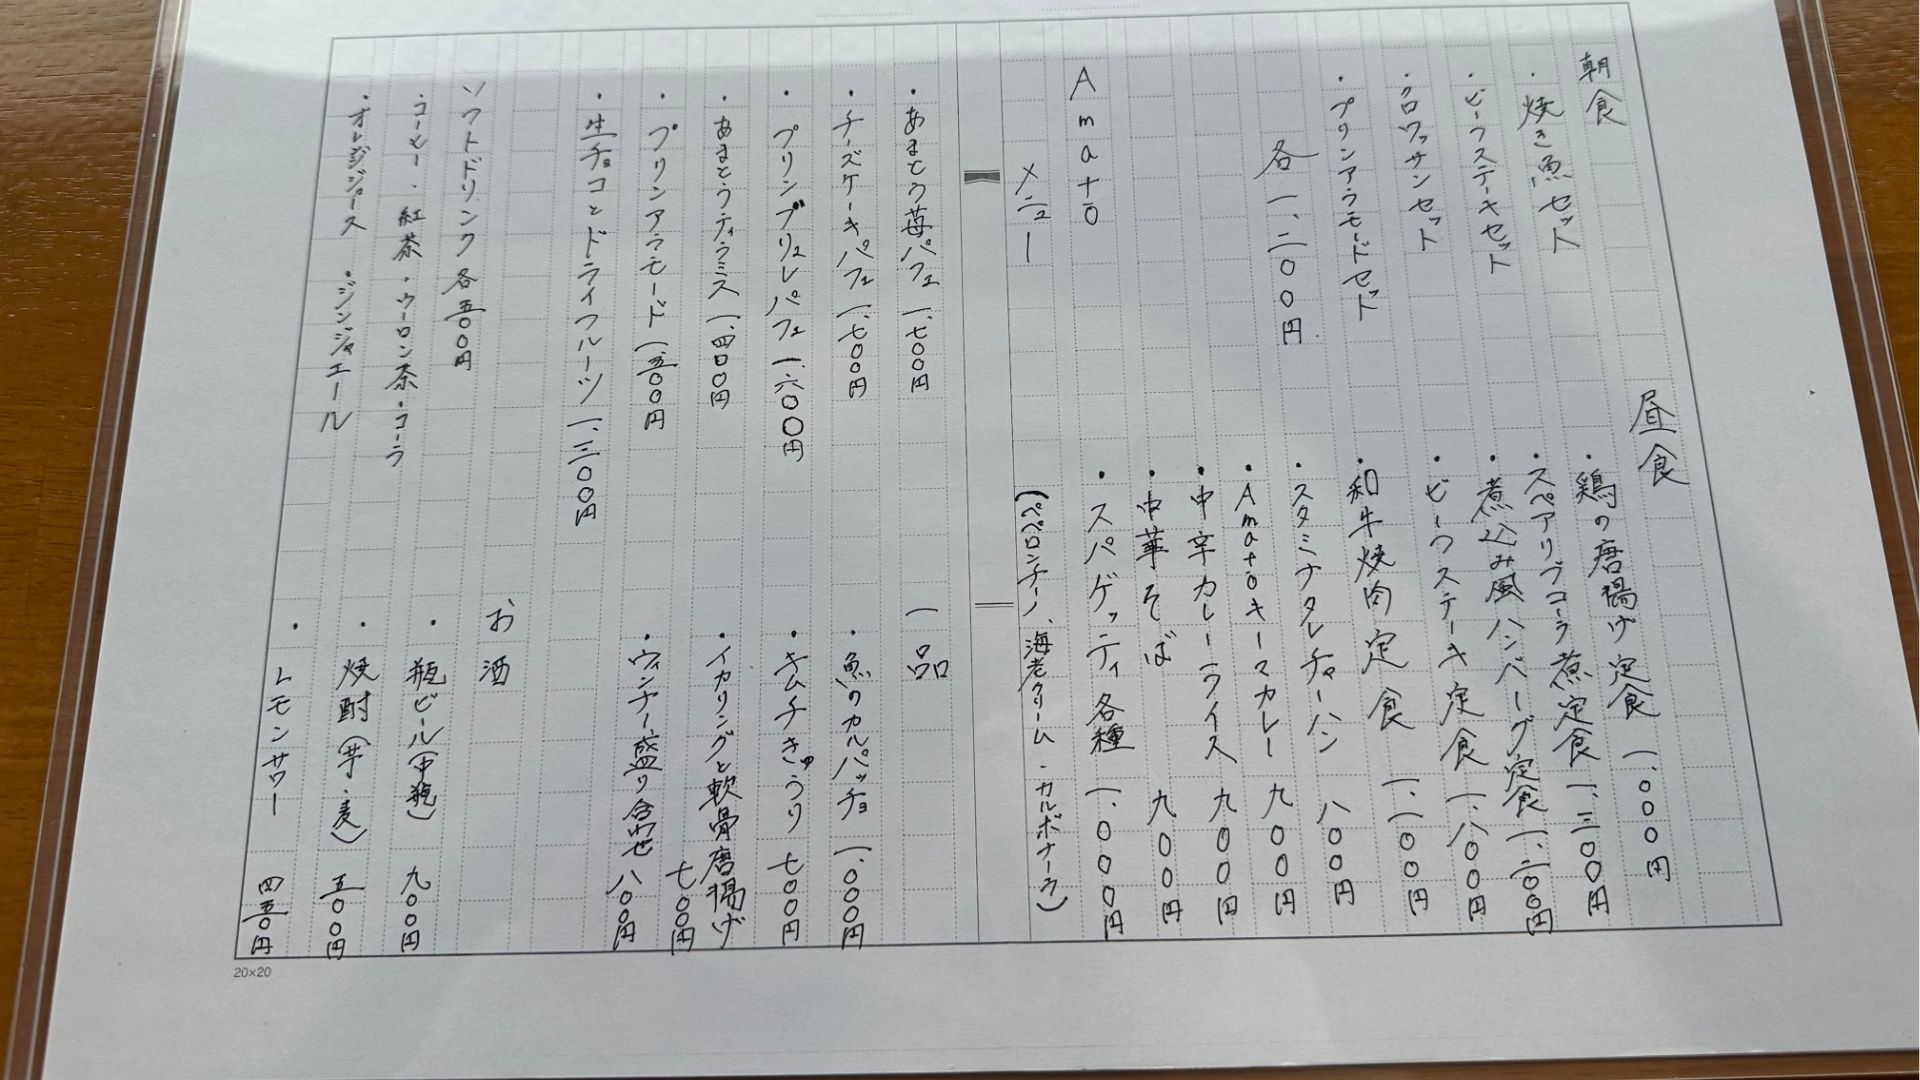 朝食
・焼き魚セット
・ビーフステーキセット
・クロワッサンセット
・プリンアラモードセット
各一、二〇〇円
昼食
・鶏の唐揚げ定食 一、〇〇〇円
・スペアリブコーラ煮定食 一、三〇〇円
・煮込み風ハンバーグ定食 一、二〇〇円
・ビーフステーキ定食 一、八〇〇円
・和牛焼肉定食 一、一〇〇円
・スタミナタレチャーハン 八〇〇円
・Amatōキーマカレー 九〇〇円
・中辛カレーライス 九〇〇円
・中華そば 九〇〇円
・スパゲッティ各種 一、〇〇〇円
(ペペロンチーノ、海老クリーム・カルボナーラ)
Amatō
メニュー
・あまとう苺パフェ 一、七〇〇円
・チーズケーキパフェ 一、七〇〇円
・プリンブリュレパフェ 一、六〇〇円
・あまとうティラミス 一、四〇〇円
・プリンアラモード 一、五〇〇円
・生チョコとドライフルーツ 一、三〇〇円
一品
・魚のカルパッチョ 一、〇〇〇円
・キムチきゅうり 七〇〇円
・イカリングと軟骨唐揚げ
七〇〇円
・ウィンナー盛り合わせ 八〇〇円
ソフトドリンク 各五〇〇円
・コーヒー・紅茶・ウーロン茶・コーラ
・オレンジジュース ・ジンジャエール
お酒
・瓶ビール(中瓶) 九〇〇円
・焼酎(芋・麦) 五〇〇円
・レモンサワー 四五〇円
20×20